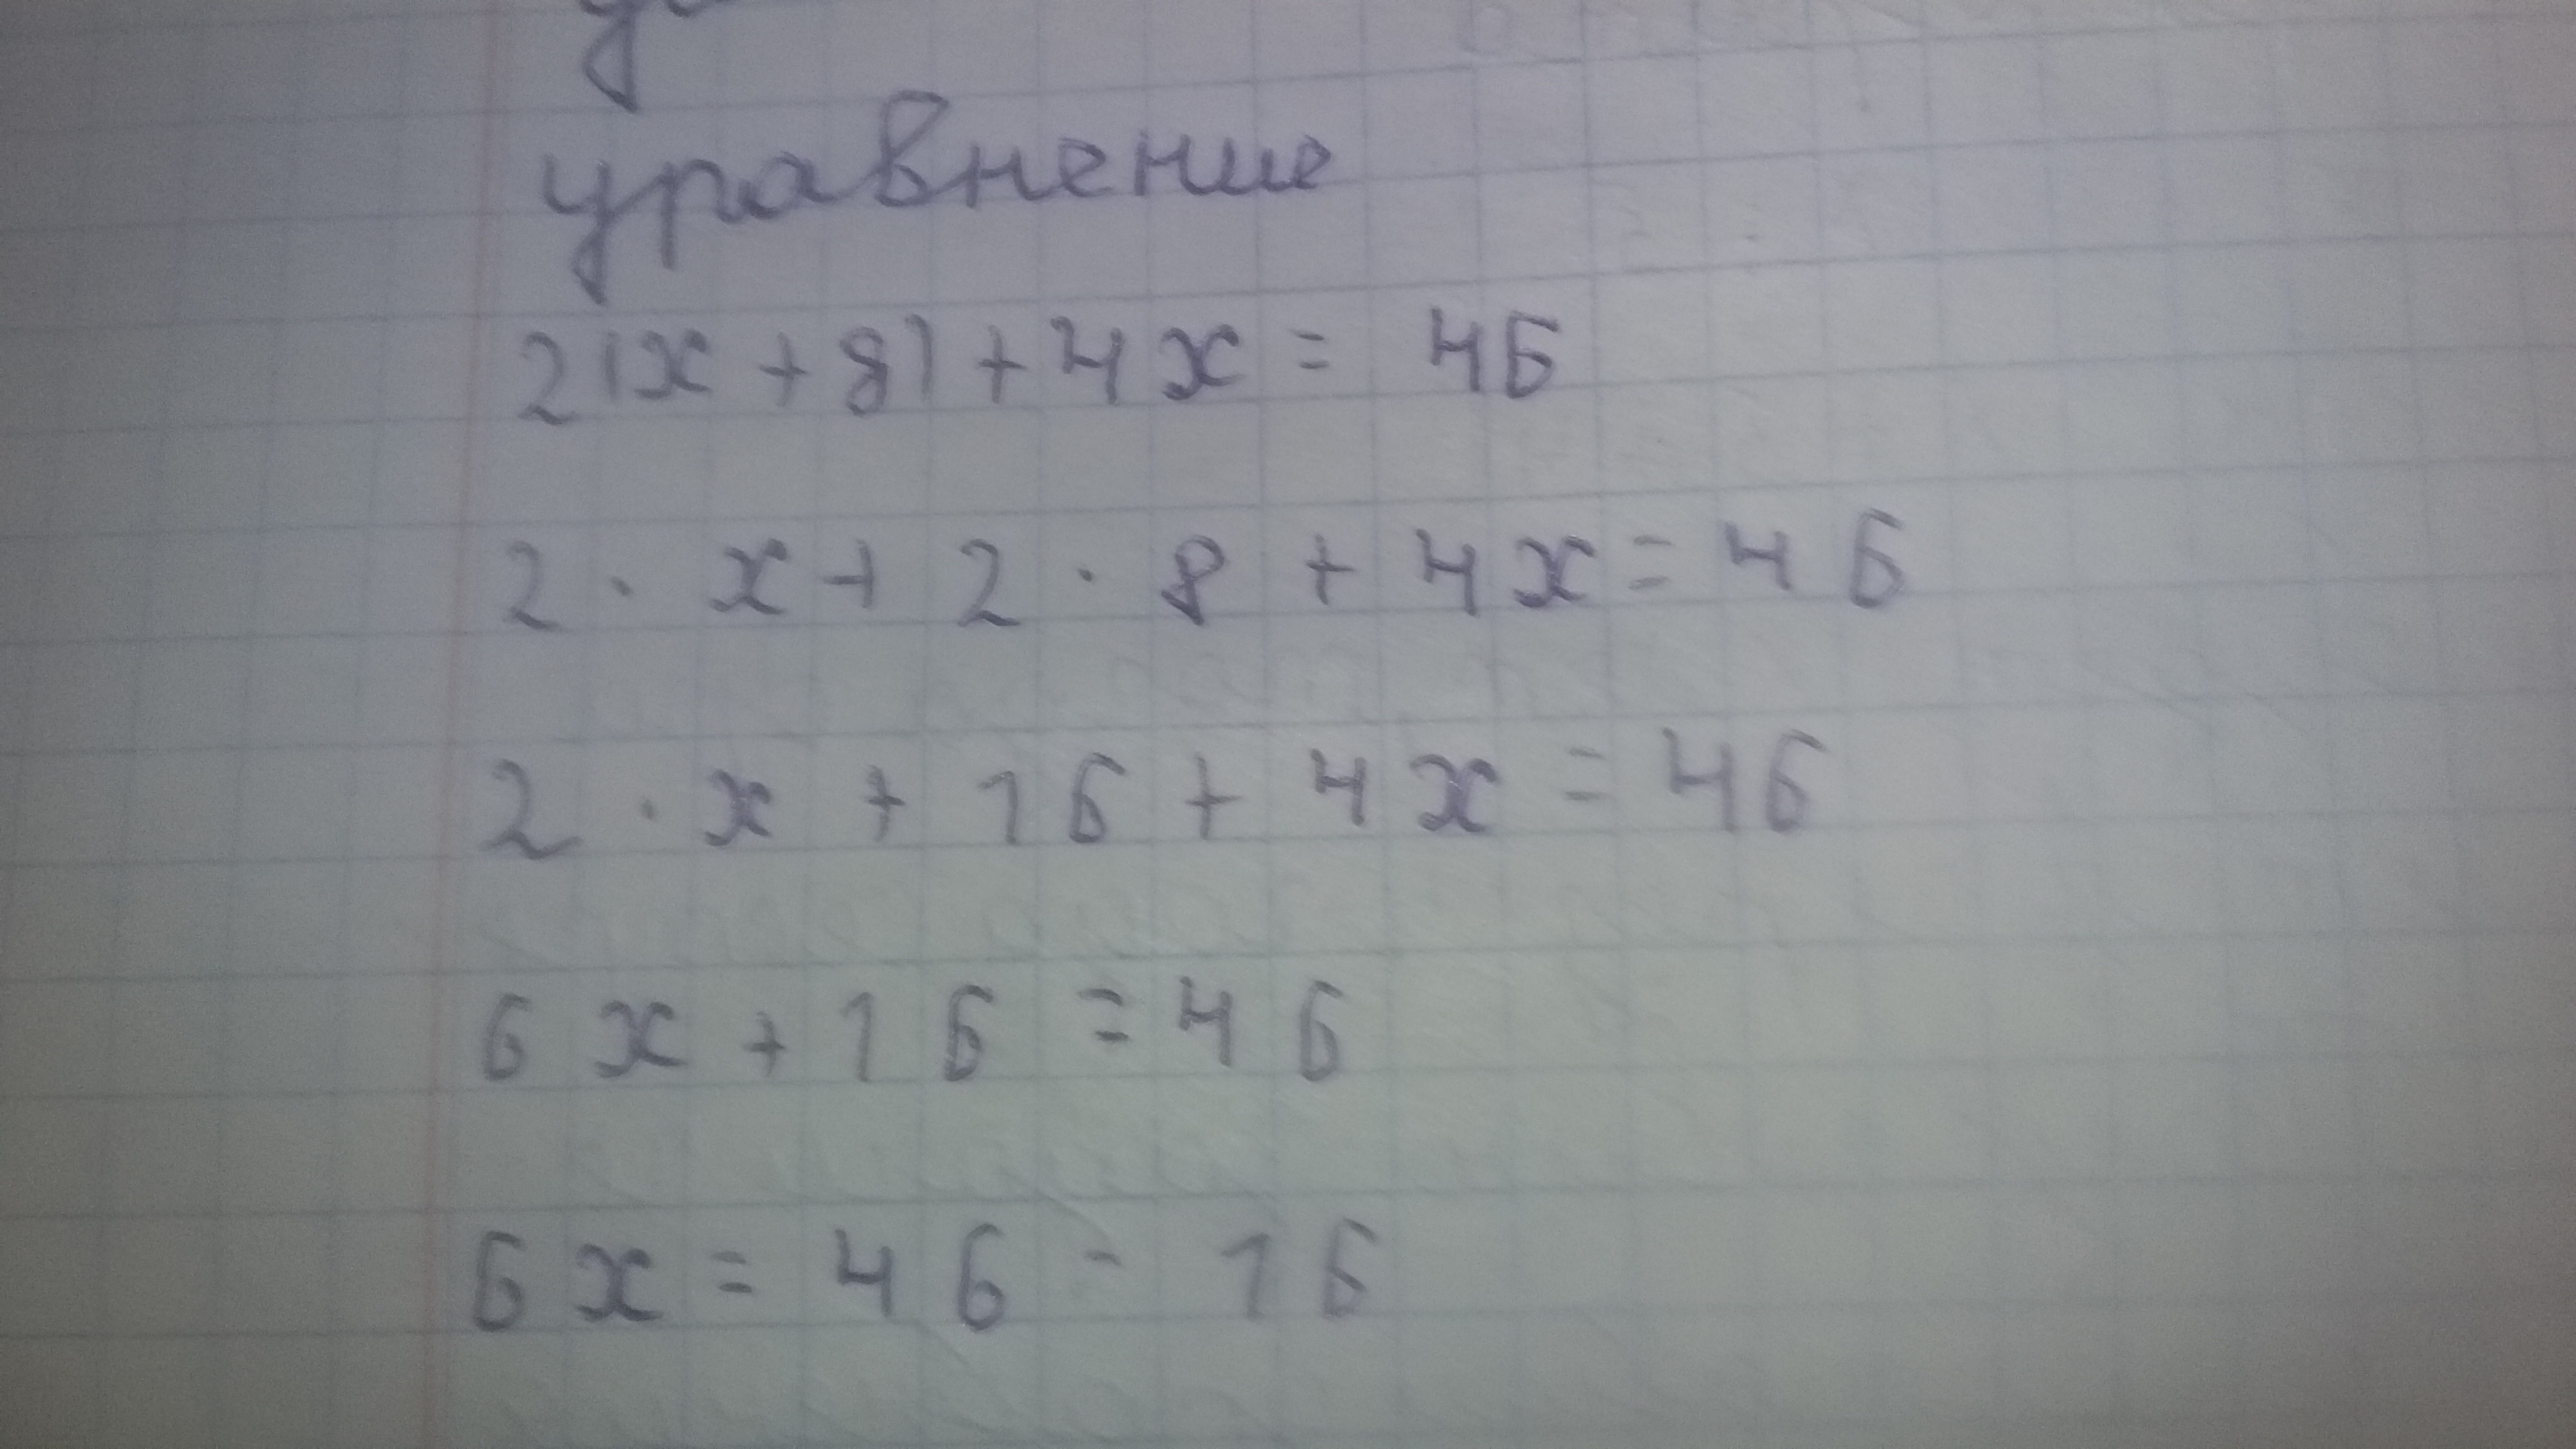 уравнение
2(x + 8) + 4x = 46
2 · x + 2 · 8 + 4x = 46
2 · x + 16 + 4x = 46
6x + 16 = 46
6x = 46 - 16